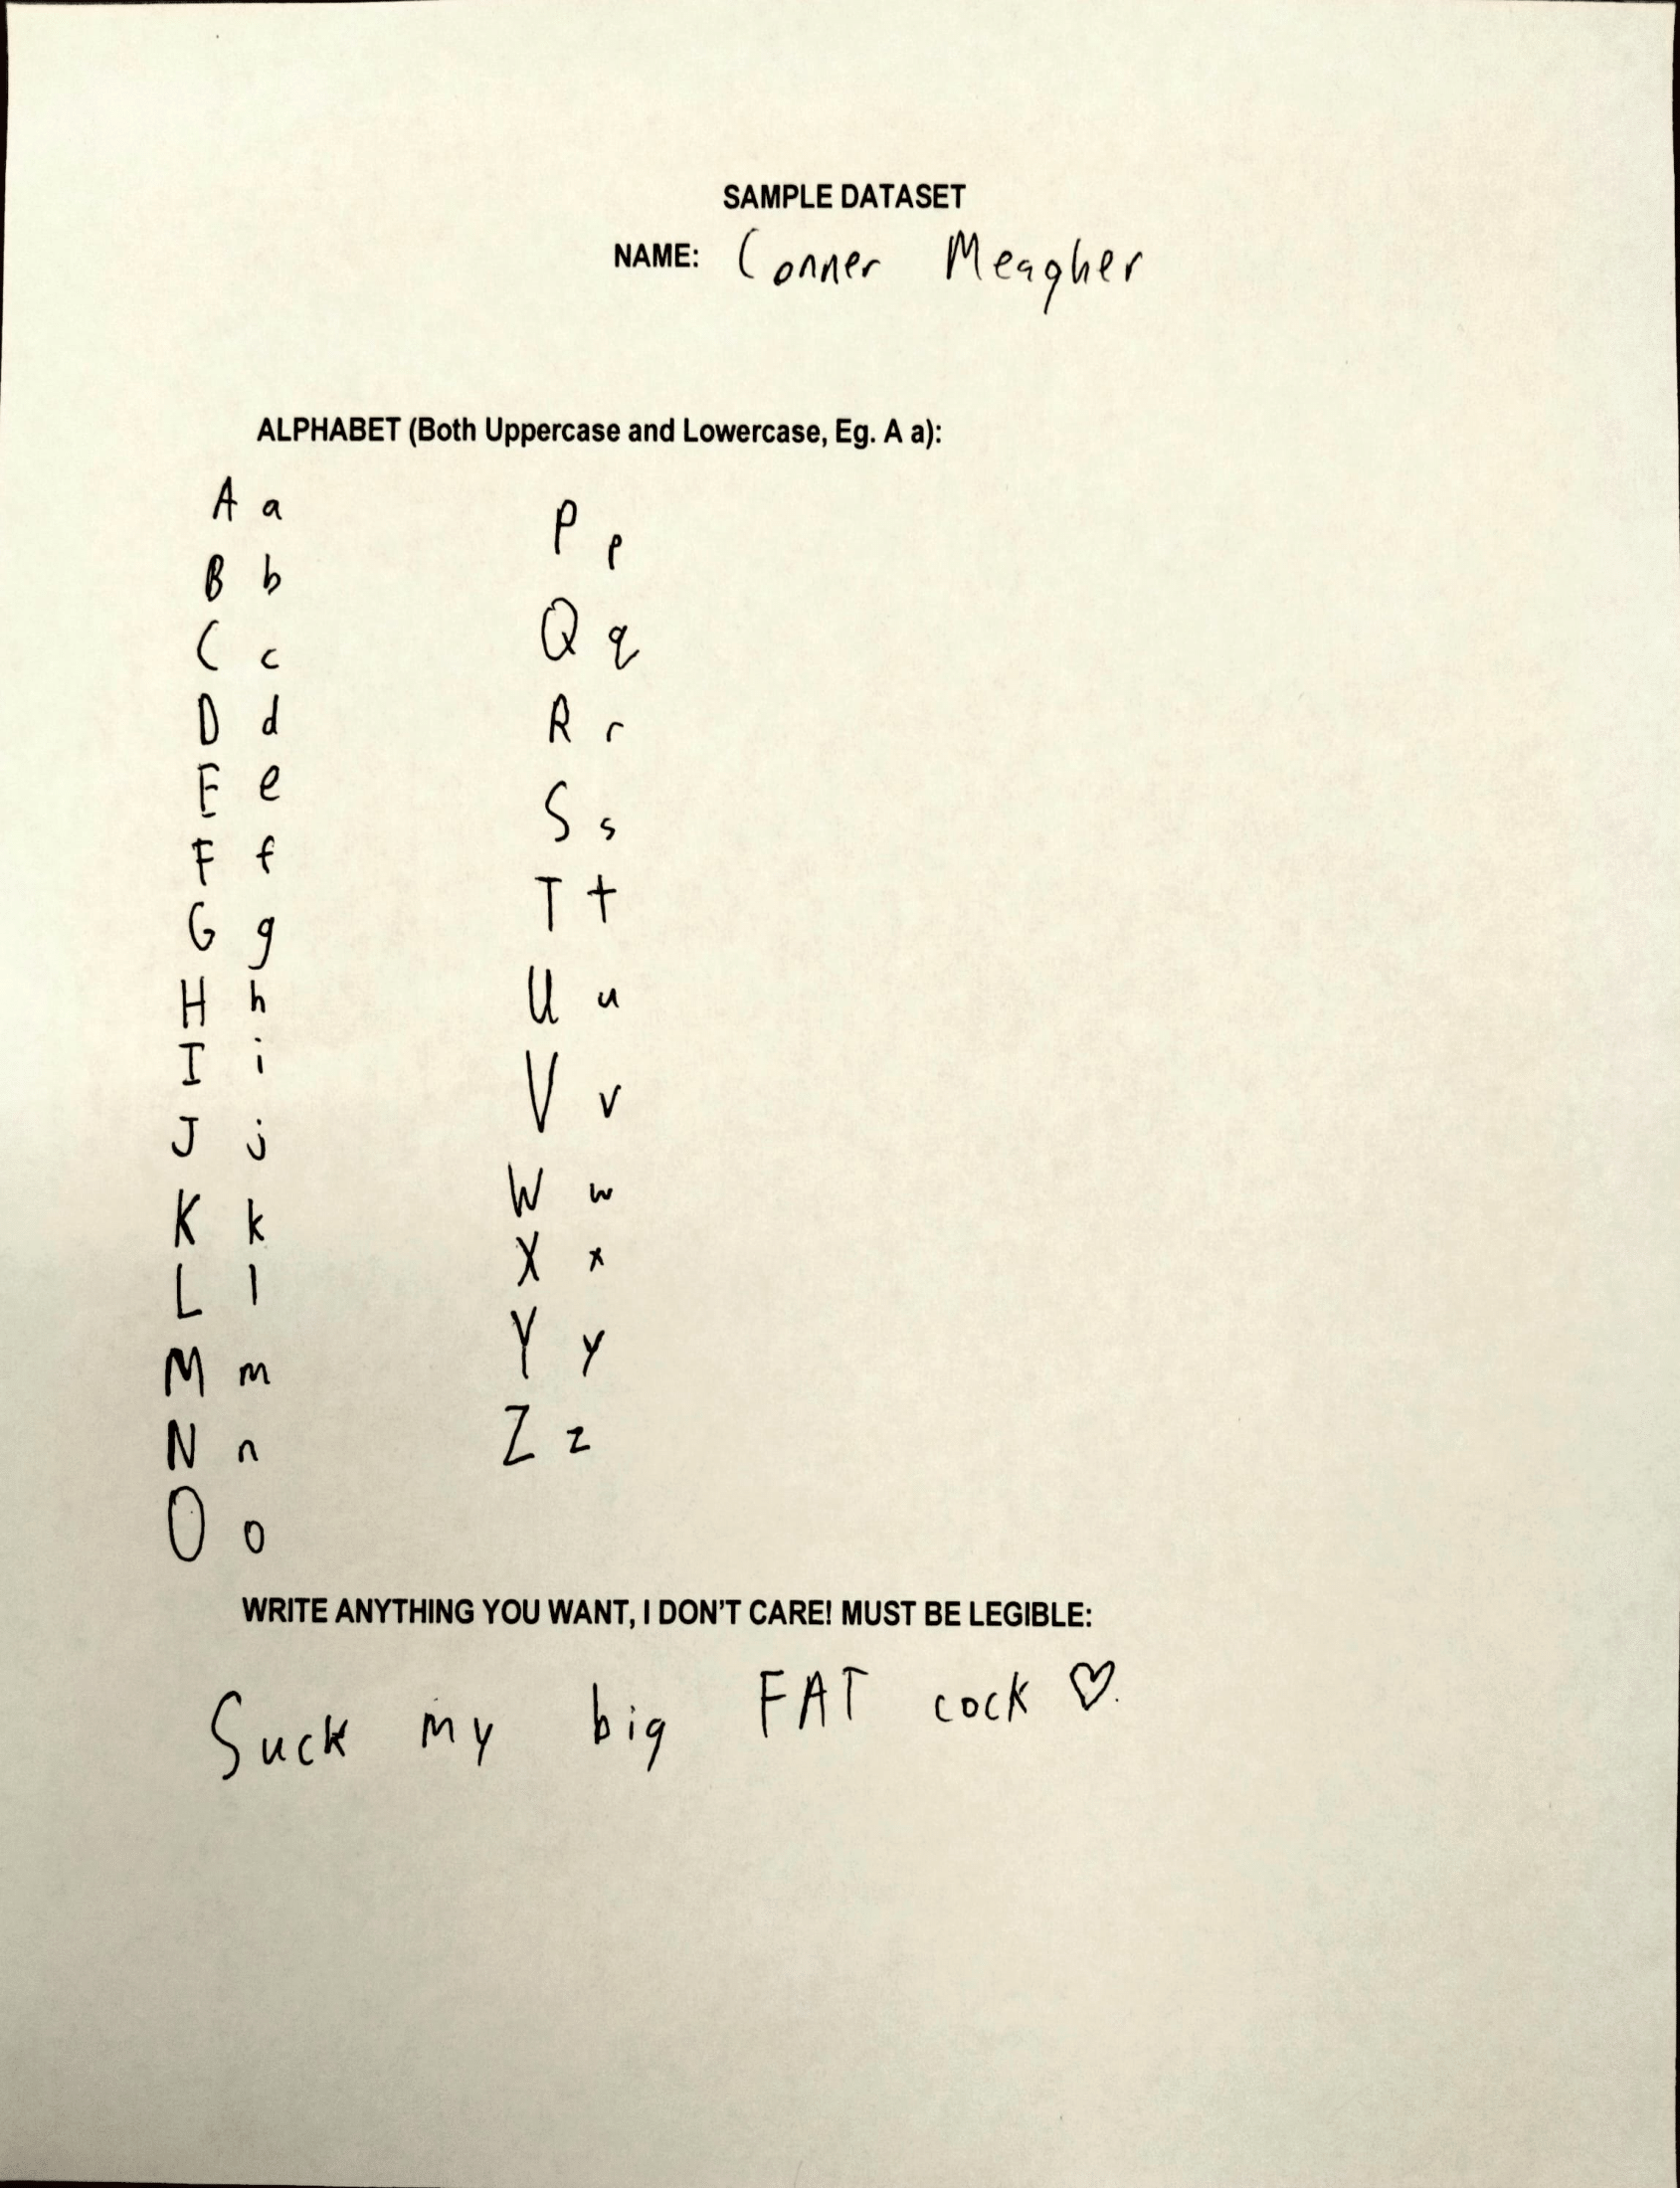 SAMPLE DATASET
NAME: Conner Meagher
ALPHABET (Both Uppercase and Lowercase, Eg. A a):
A a
B b
C c
D d
E e
F f
G g
H h
I i
J j
K k
L l
M m
N n
O o
P p
Q q
R r
S s
T t
U u
V v
W w
X x
Y y
Z z
WRITE ANYTHING YOU WANT, I DON'T CARE! MUST BE LEGIBLE:
Suck my big FAT cock ♡